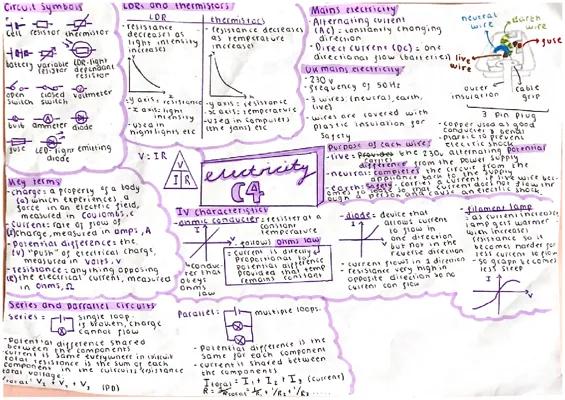 Circuit symbols
cell resistor thermistor
battery variable resistor LDR-light dependant resistor
open switch closed switch voltmeter
bulb ammeter diode
fuse LED-light emitting diode
LDRs and thermistors
LDR
- resistance
decreases as
light intensity
increases
- y axis: resistance
- x axis: light
intensity
- used in
nightlights etc
thermistors
- resistance decreases
as temperature
increases
- y axis: resistance
- x axis: temperature
- used in computers
(the fans) etc
Mains electricity
- Alternating current
(AC) = constantly changing
direction
- Direct current (DC) = one
directional flow (batteries)
UK mains electricity
- 230 V
- frequency of 50Hz
- 3 wires: (neutral, earth,
live)
- wires are covered with
plastic insulation for
safety
neutral wire
earth wire
fuse
live wire
outer insulation
cable grip
3 pin plug
- copper used as good
conductor & bends
- plastic to prevent
electric shock
Purpose of each wire:
- live: carries the 230v alternating potential
difference from the power supply
- neutral: completes the circuit from the
appliance back to the supply
V = IR
V
I R
electricity
C4
Key terms
- charge: a property of a body
(Q) which experiences a
force in an electric field,
measured in coulombs, C
- current: rate of flow of
(I) charge, measured in amps, A
- Potential difference: the
(V) "push" of electrical charge,
measured in volts, V
- resistance: anything opposing
(R) the electrical current, measured
in ohms, Ω
IV characteristics
- ohmic conductor: resistor at a
constant temperature
(follow) ohms law
= current is directly
proportional to potential
difference provided that temp
remains constant
- conductor that
obeys
ohms
law
- diode: device that
allows current
to flow in
one direction
but not in the
reverse direction
- current flows in 1 direction
- resistance very high in
opposite direction so no
current can flow
- filament lamp
- as current increases
lamp gets warmer
which increases
resistance so it
becomes harder for
less current to flow
so graph becomes
less steep
Series and parrallel circuits
Series = single loop.
if broken, charge
cannot flow
- Potential difference shared
between the components
- current is same everywhere in circuit
- total resistance is the sum of each
component in the circuits resistance
- total voltage:
Vtotal = V1 + V2 + V3 (PD)
Parallel: multiple loops.
- Potential difference is the
same for each component
- current is shared between
the components
Itotal = I1 + I2 + I3 (current)